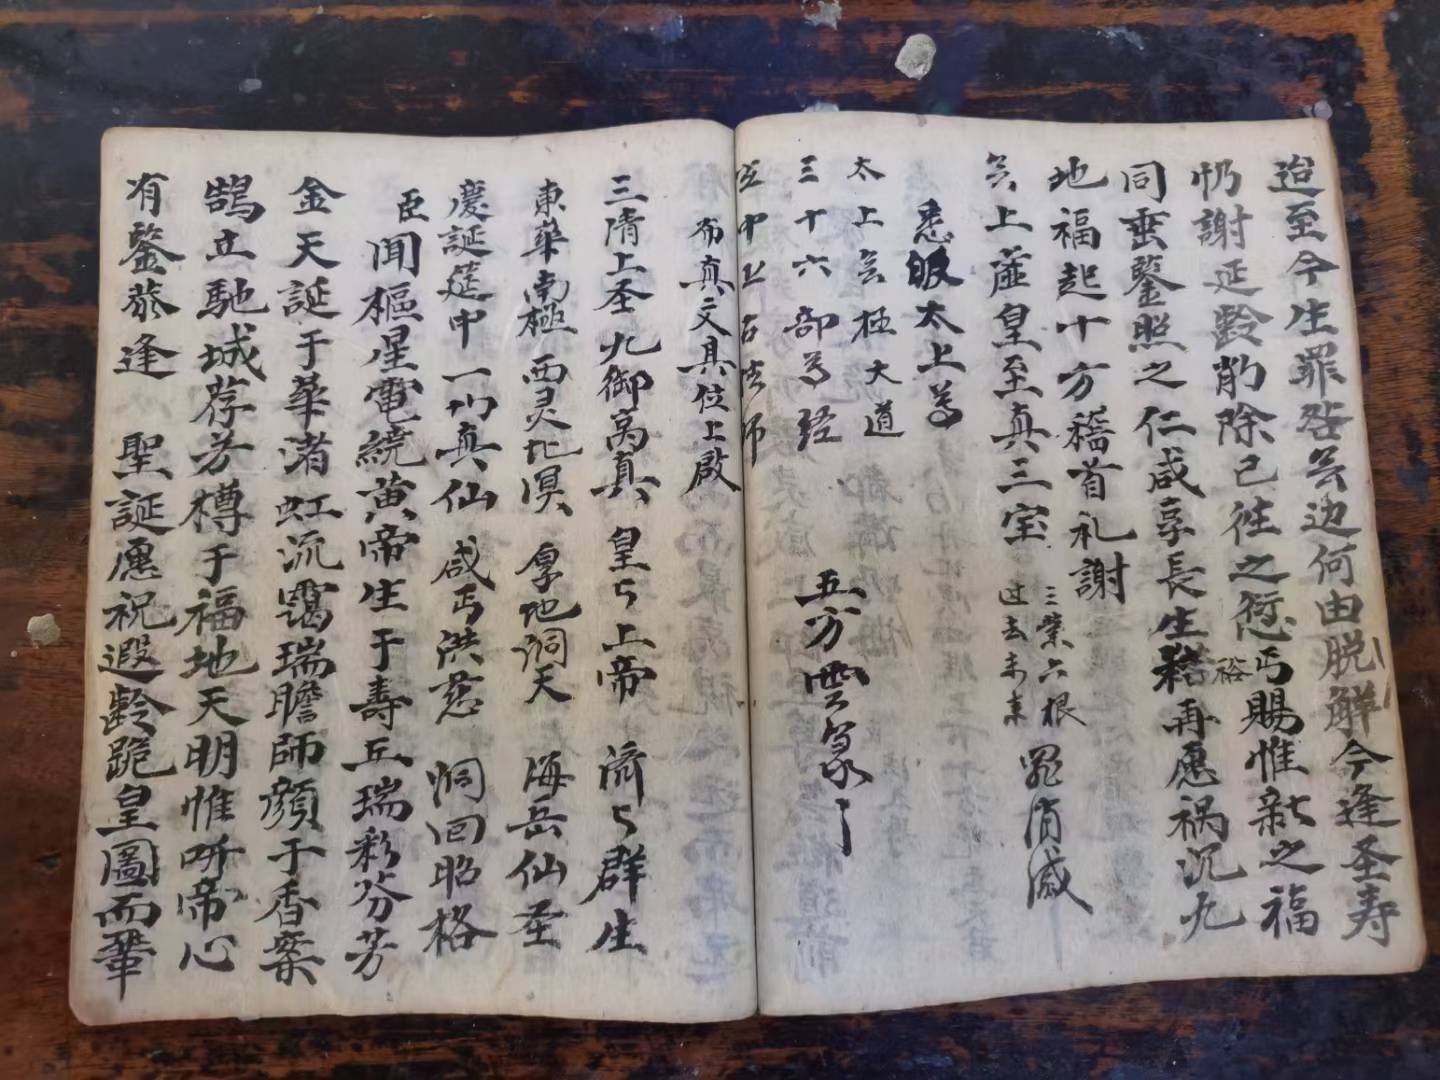 迨至今生罪咎岺边何由脱解今逢圣寿
忻謝延齡削除已徃之愆丐賜惟新之福
同垂鑒照之仁咸享長生裕再愿祸沉九
地福起十方稽首礼謝
三業六根
过去未来
罪消滅
岺上虛皇至真三宝
悉皈太上㝵
太上岺極大道
三十六部㝵经
玄中上古吉师
五方雲篆
布真文具位上啟
三清上圣 九御高真 皇〻上帝 濟〻群生
東華南極 西灵北溟 厚地洞天 海岳仙圣
慶誕筵中 一切真仙 咸丐洪慈 洞回昭格
臣聞樞星電繞黄帝生于壽丘瑞彩芬芳
金天誕于華渚虹流靄瑞瞻師顔于香案
鵠立馳城荐芳樽于福地天明惟听帝心
有鑒恭逢 聖誕愿祝遐齡跪皇圖而鞏